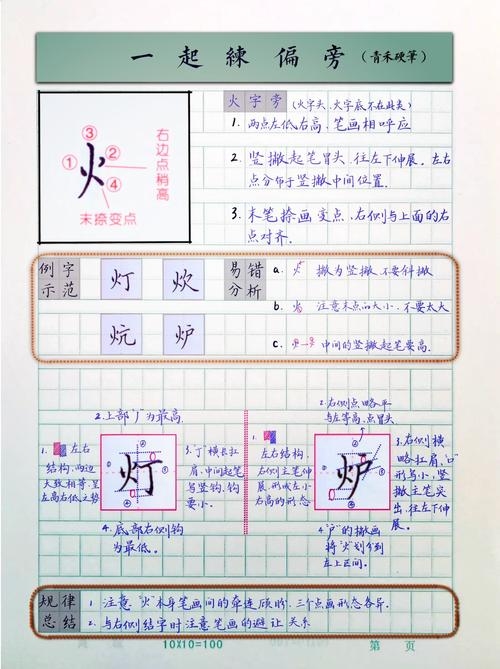 一起練偏旁（青禾硬筆）
火字旁（火字头、火字底不在此类）
1. 两点左低右高，笔画相呼应
2. 竖撇起笔冒头，往左下伸展，左右
点分布于竖撇中间位置.
3. 末笔捺画变点，右侧与上面的右
点对齐.
③
①
②
④
火
右边点稍高
末捺变点
例字
示范
灯 炊
炕 炉
易错
分析
a. 撇为竖撇，不要斜撇
b. 注意末点的大小，不要太大
c. 中间的竖撇起笔要高.
2.上部"丿"为最高.
1. 左右
结构，两边
大致相等，呈
左高右低之势
灯
3."丁"横长扛
肩，中间起笔
与竖钩，钩
要小.
4. 底部右侧钩
为最低.
2.右侧点略平
与左等高，点冒头.
1.
左右结构，
右侧主笔伸
展，形成左小
右高的形态
炉
3.右侧横
略扛肩，"口"
形与小，竖
撇主笔突
出，往左下伸
展.
4."户"的撇画
将"火"划分到
左上区间.
规律
总结
1. 注意"火"本身笔画间的牵连顾盼，三个点画形态各异.
2. 与右侧结字时注意笔画的避让关系
10X10=100
第 页